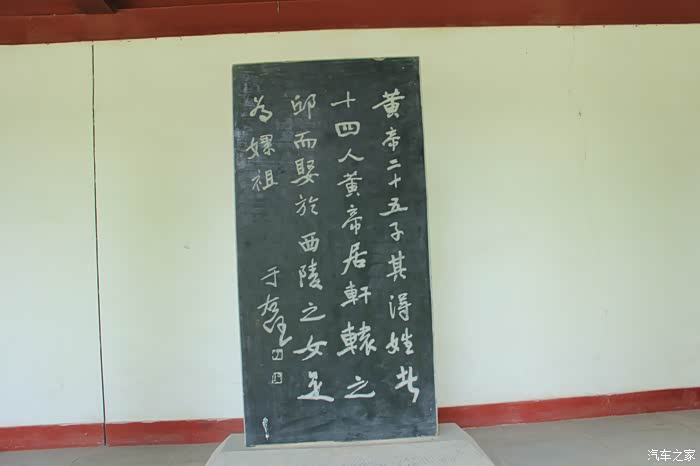 黄帝二十五子其得姓者
十四人黄帝居軒轅之
邱而娶於西陵之女是
为嫘祖
于右任
汽车之家